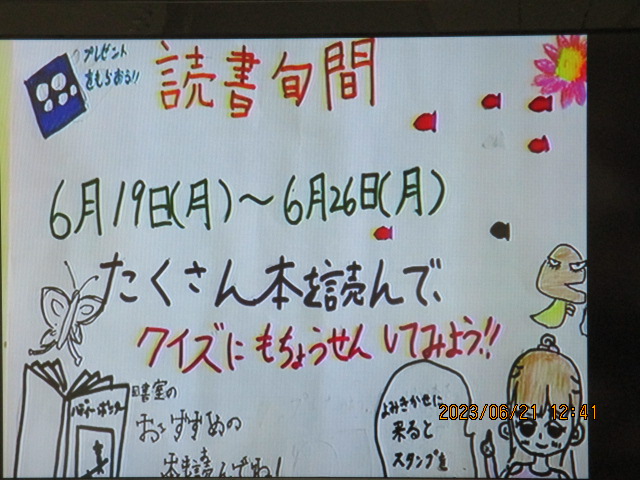 プレゼント
をもらおう!!
読書旬間
6月19日(月)〜6月26日(月)
たくさん本を読んで、
クイズにもちょうせんしてみよう!!
おすすめの
本も読んでね!
よみきかせに
来ると
スタンプを
2023/06/21 12:41